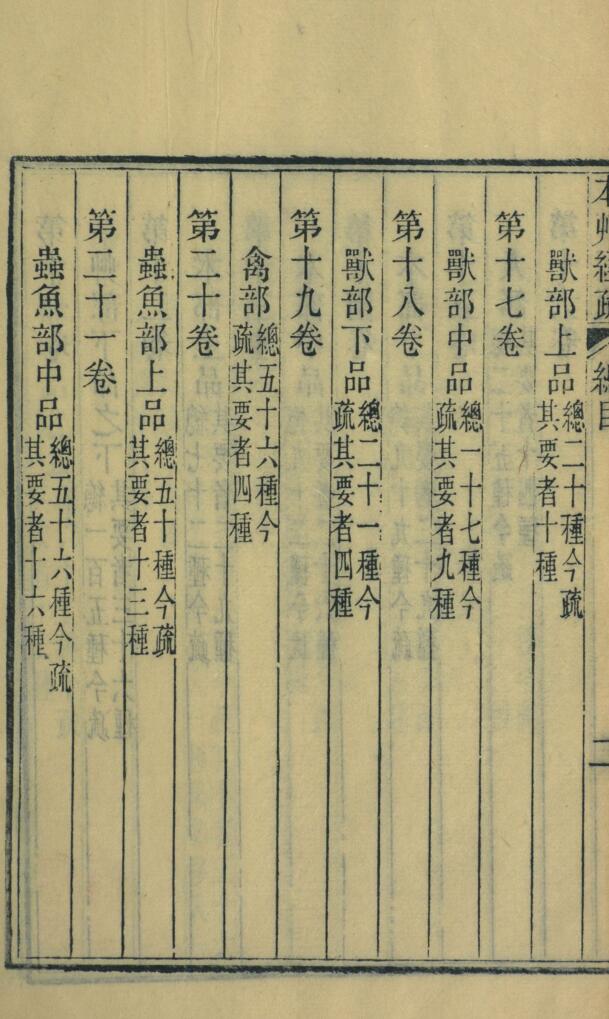 本艸經疏 總目 二
獸部上品 總二十種今疏其要者十種
第十七卷
獸部中品 總一十七種今疏其要者九種
第十八卷
獸部下品 總二十一種今疏其要者四種
第十九卷
禽部 總五十六種今疏其要者四種
第二十卷
蟲魚部上品 總五十種今疏其要者十三種
第二十一卷
蟲魚部中品 總五十六種今疏其要者十六種